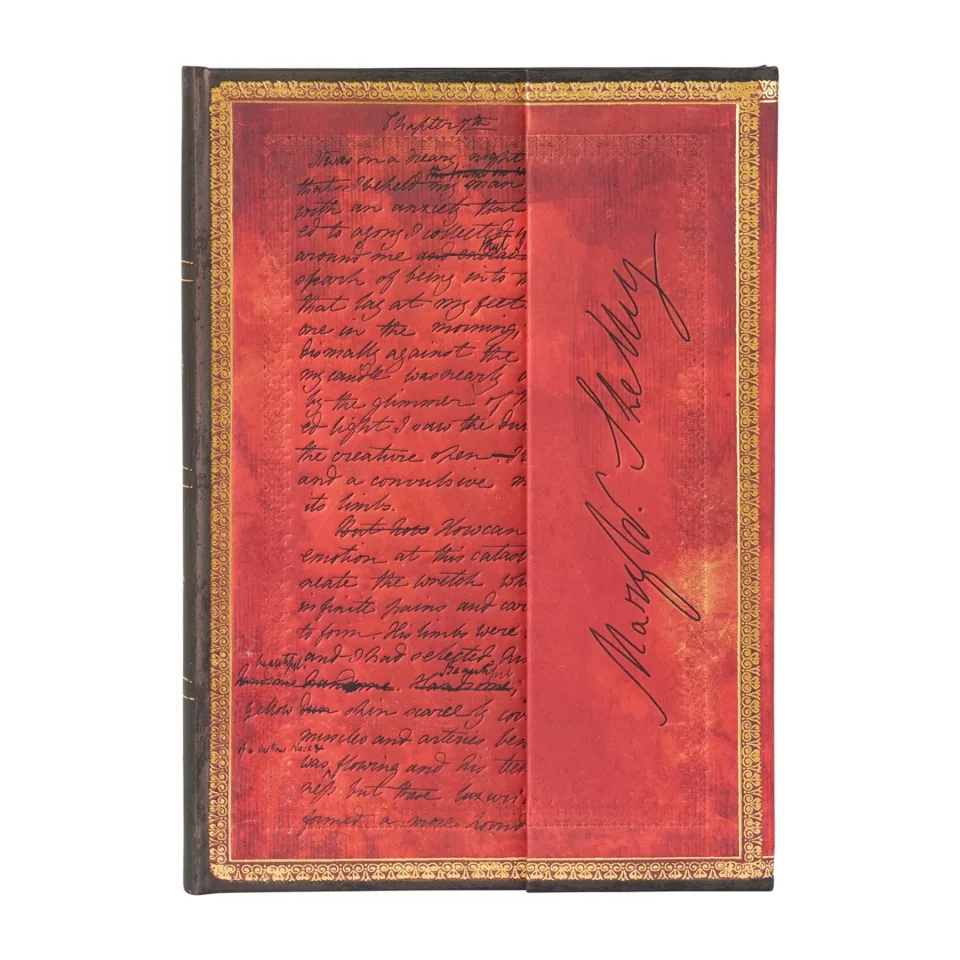 Chapter 7th
It was on a dreary night
that I beheld my man
with an anxiety that
ed to agony I collected
around me and endeav
that
spark of being into
that lay at my feet
one in the morning,
dismally against the
my candle was nearly
by the glimmer of
ed light I saw the du
the creature open
and a convulsive m
its limbs.
But how How can
emotion at this catas
neate the wretch wh
infinite pains and car
to form. His limbs were
and I had selected his
beautiful. Beautiful
handsome handsome. Handsome;
yellow dun skin scarcely cov
muscles and arteries ben
of a lustrous black &
was flowing and his tee
ness but these luxuri
formed a more
Mary W. Shelley